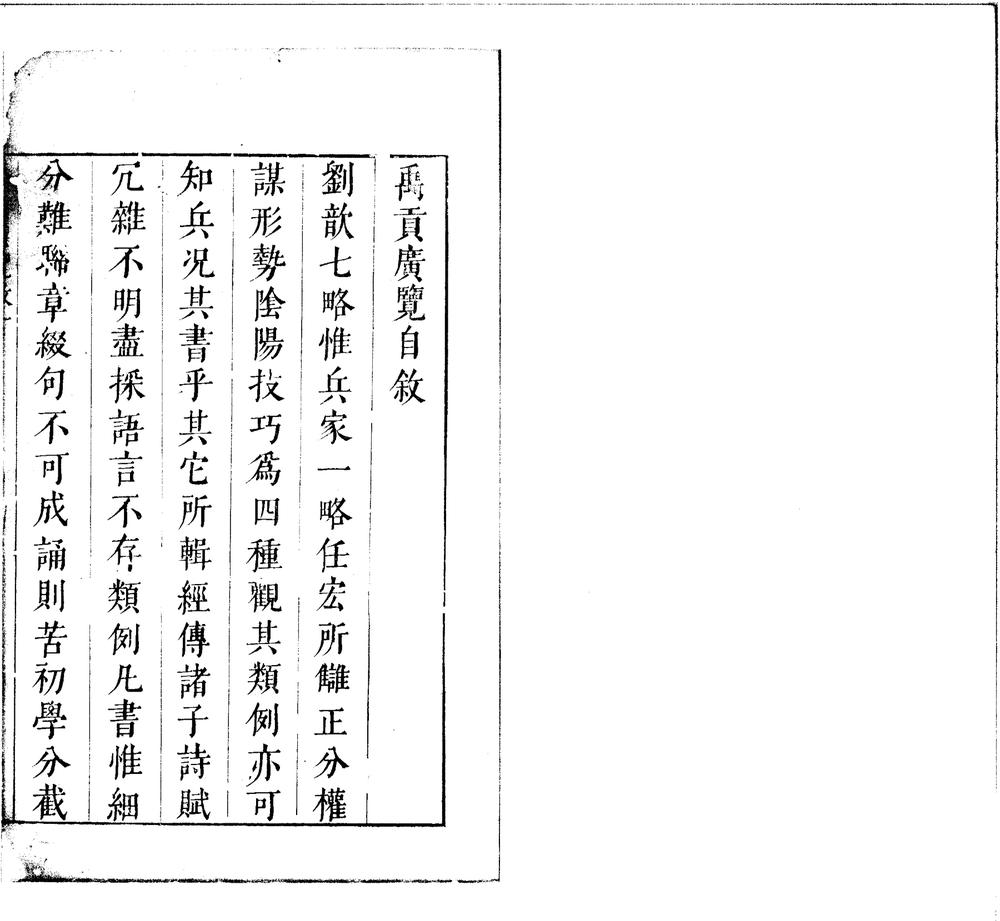 禹貢廣覽自敘
劉歆七略惟兵家一略任宏所讎正分權
謀形勢陰陽技巧爲四種觀其類例亦可
知兵况其書乎其它所輯經傳諸子詩賦
冗雜不明盡採語言不存類例凡書惟細
分難聯章綴句不可成誦則苦初學分截